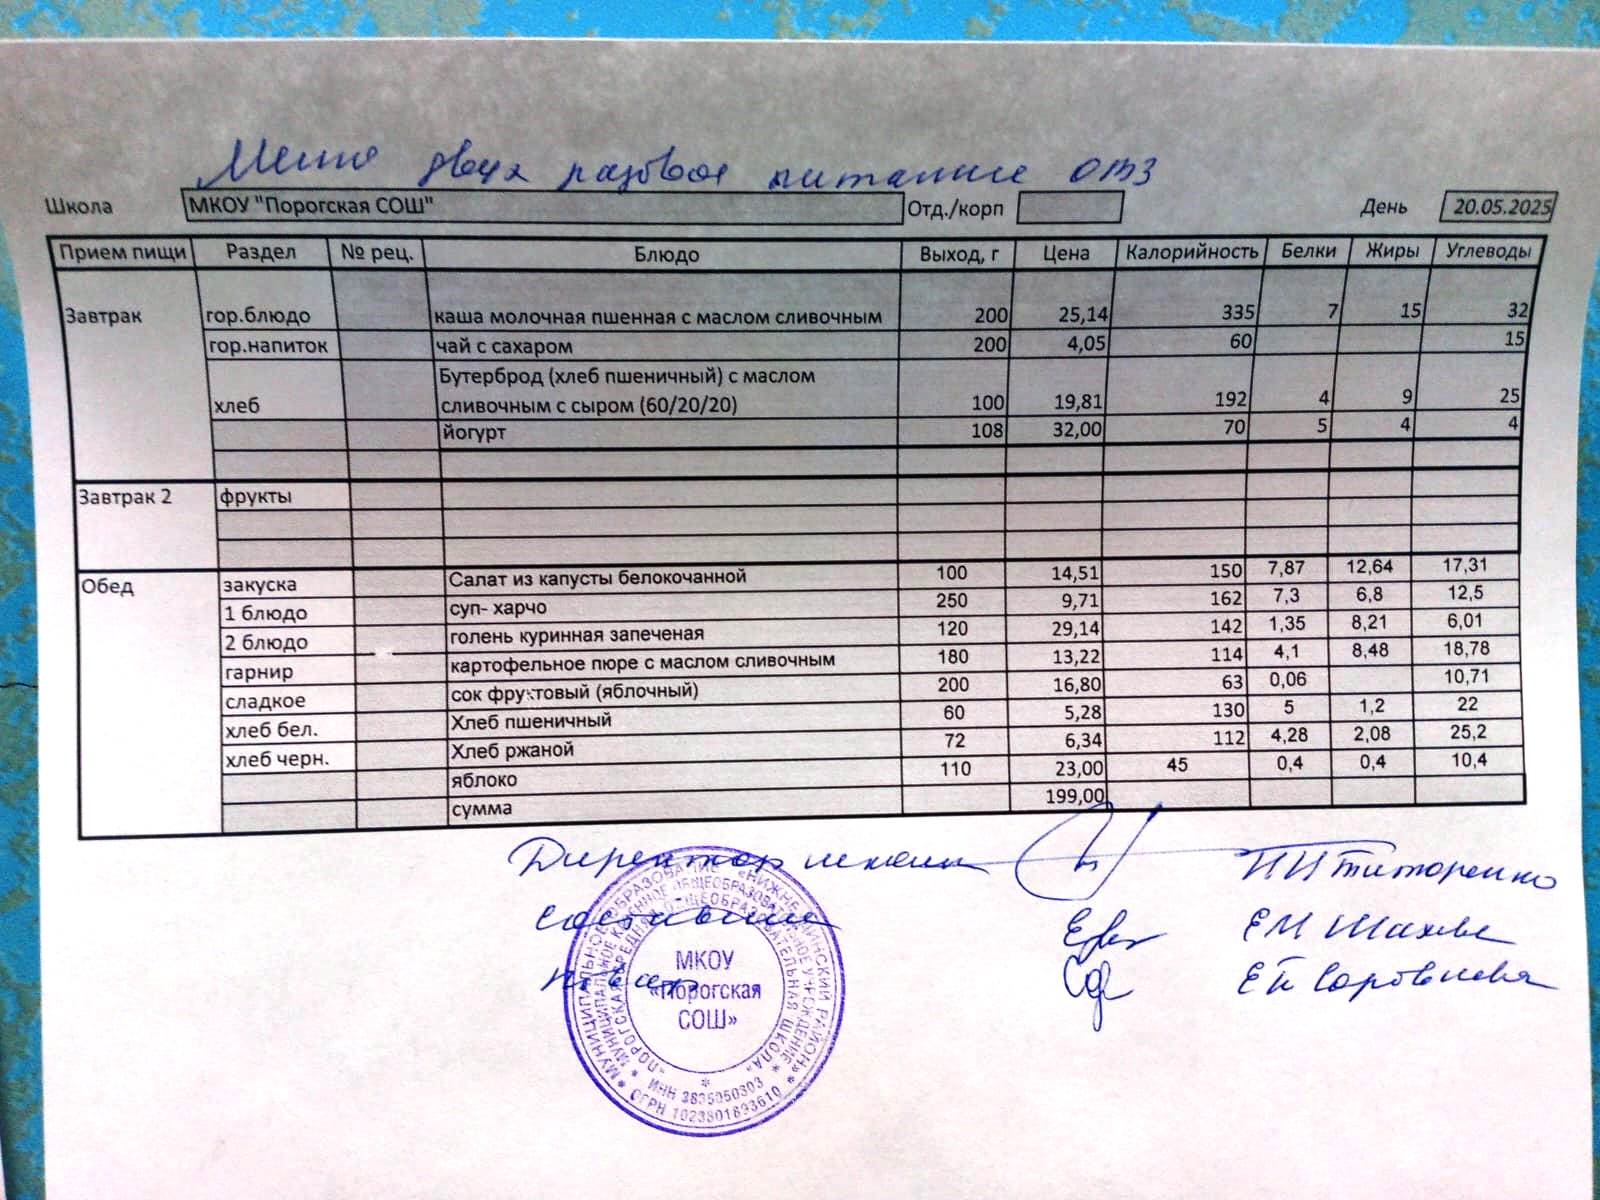 Меню двух разовое питание ОВЗ
Школа МКОУ "Порогская СОШ" Отд./корп День 20.05.2025
Прием пищи Раздел № рец. Блюдо Выход, г Цена Калорийность Белки Жиры Углеводы
Завтрак гор.блюдо каша молочная пшенная с маслом сливочным 200 25,14 335 7 15 32
гор.напиток чай с сахаром 200 4,05 60 15
Бутерброд (хлеб пшеничный) с маслом
хлеб сливочным с сыром (60/20/20) 100 19,81 192 4 9 25
йогурт 108 32,00 70 5 4 4
Завтрак 2 фрукты
Обед закуска Салат из капусты белокочанной 100 14,51 150 7,87 12,64 17,31
1 блюдо суп- харчо 250 9,71 162 7,3 6,8 12,5
2 блюдо голень куринная запеченая 120 29,14 142 1,35 8,21 6,01
гарнир картофельное пюре с маслом сливочным 180 13,22 114 4,1 8,48 18,78
сладкое сок фруктовый (яблочный) 200 16,80 63 0,06 10,71
хлеб бел. Хлеб пшеничный 60 5,28 130 5 1,2 22
хлеб черн. Хлеб ржаной 72 6,34 112 4,28 2,08 25,2
яблоко 110 23,00 45 0,4 0,4 10,4
сумма 199,00
Директор школы
МКОУ
«Порогская
СОШ»
ИНН 3835050303
ОГРН 1023801893610